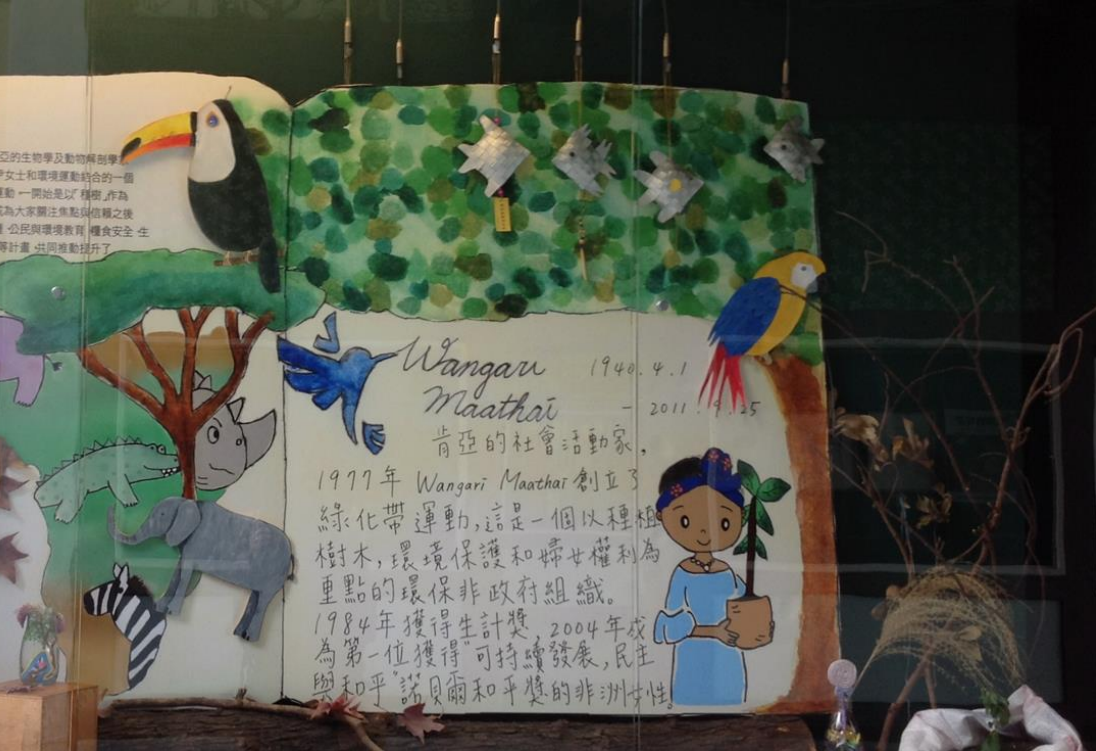 亞的生物學及動物解剖學
女士和環境運動結合的一個
運動,一開始是以「種樹」作為
成為大家關注焦點與信賴之後
公民與環境教育、糧食安全、生
等計畫,共同推動提升了
Wangari 1940.4.1
Maathai - 2011.9.25
肯亞的社會活動家,
1977年 Wangari Maathai 創立了
綠化帶運動,這是一個以種植
樹木,環境保護和婦女權利為
重點的環保非政府組織。
1984年獲得"生計獎,2004年成
為第一位獲得"可持續發展,民主
與和平"諾貝爾和平獎的非洲女性。